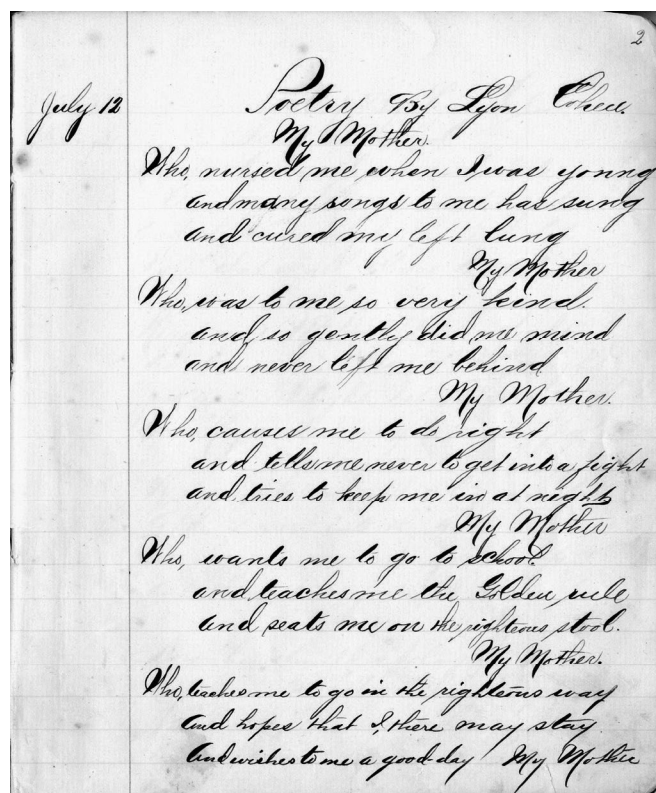 2
July 12
Poetry By Lyon Cohen.
My Mother.
Who, nursed me when I was young
and many songs to me has sung
and cured my left lung
My Mother
Who, was to me so very kind.
and, so gently did me mind
and never left me behind
My Mother.
Who, causes me to do right
and tells me never to get into a fight
and tries to keep me in at night
My Mother
Who, wants me to go to school.
and teaches me the Golden rule
and seats me on the righteous stool.
My Mother.
Who, teaches me to go in the righteous way
and hopes that I, there may stay
and wishes to me a good-day My Mother